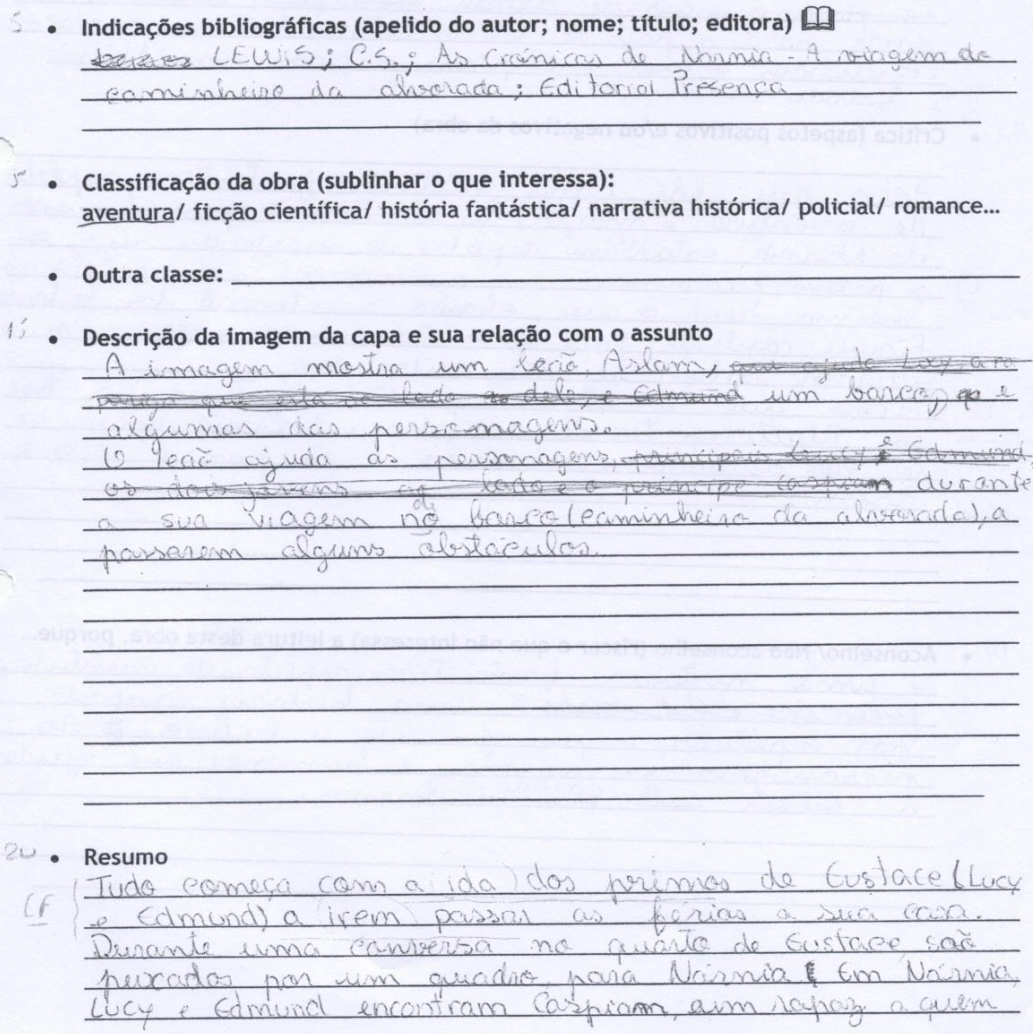 5 • Indicações bibliográficas (apelido do autor; nome; título; editora)
LEWIS; C.S.; As Crónicas de Nárnia - A viagem do
caminheiro da alvorada; Editorial Presença
• Classificação da obra (sublinhar o que interessa):
aventura/ ficção científica/ história fantástica/ narrativa histórica/ policial/ romance...
• Outra classe:
• Descrição da imagem da capa e sua relação com o assunto
A imagem mostra um leão, Aslam, um barco, e
algumas das personagens.
O leão ajuda as personagens, durante
a sua viagem no barco (caminheiro da alvorada), a
passarem alguns obstáculos.
20 • Resumo
Tudo começa com a ida dos primos de Eustace (Lucy
CF e Edmund) a irem passar as férias a sua casa.
Durante uma conversa no quarto de Eustace são
puxados por um quadro, para Nárnia. Em Nárnia,
Lucy e Edmund encontram Caspiam, um rapaz a quem